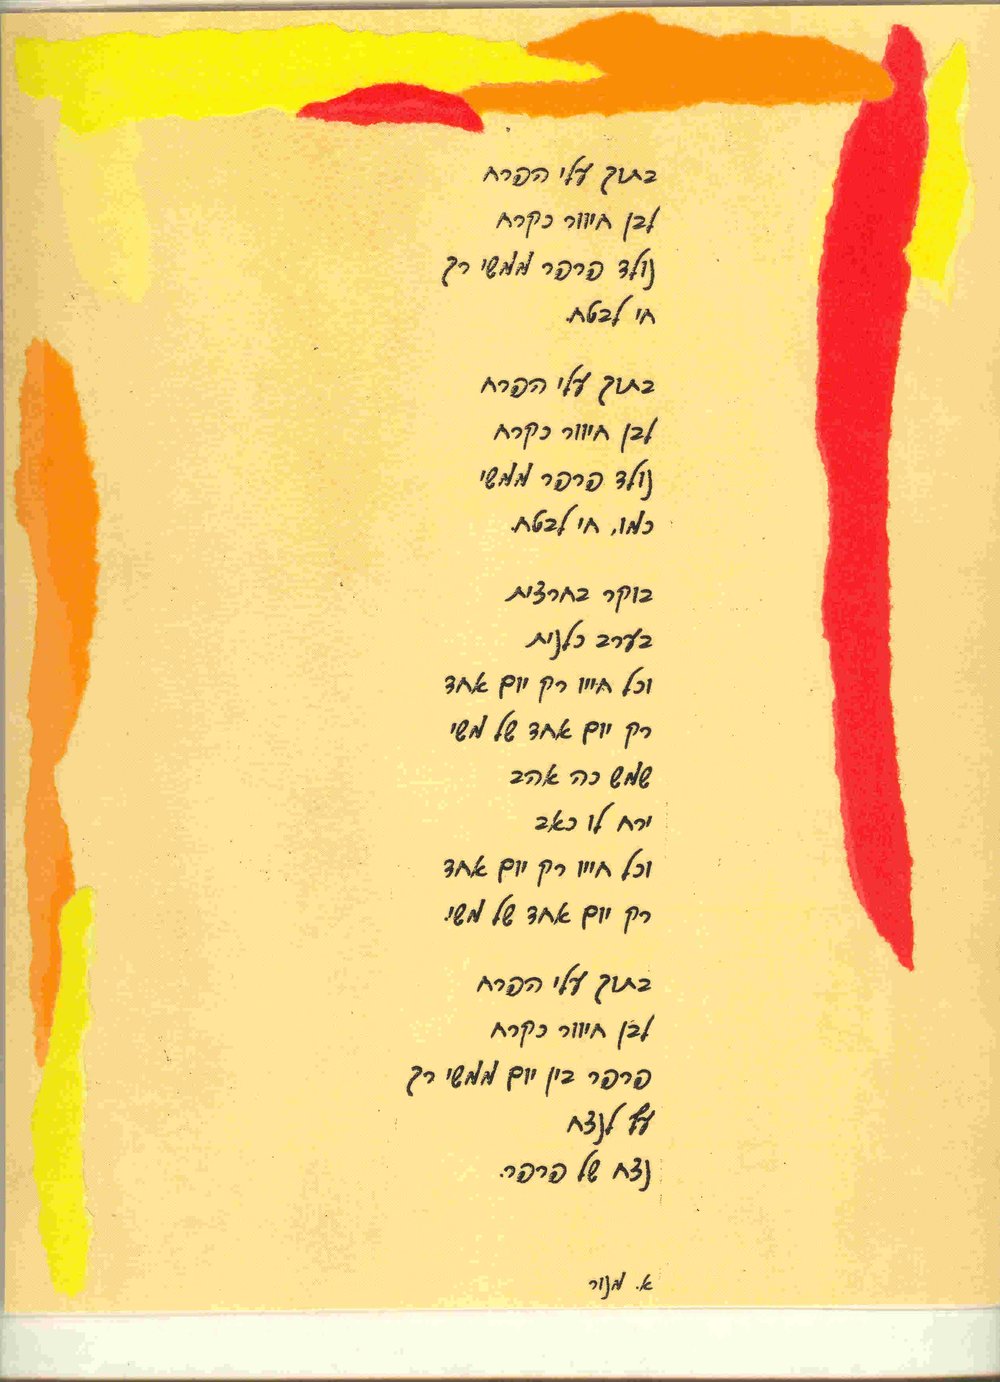 בתוך עלי הפרח
לבן חיוור כקרח
נולד פרפר ממשי רך
חי לבטח.
בתוך עלי הפרח
לבן חיוור כקרח
נולד פרפר ממשי
כמו, חי לבטח.
בוקר בחרצית
בערב כלנית
וכל חייו רק יום אחד
רק יום אחד של משי
שמש כה אהב
ירח לו כאב
וכל חייו רק יום אחד
רק יום אחד של משי.
בתוך עלי הפרח
לבן חיוור כקרח
פרפר בין יום ממשי רך
עף לנצח
נצח של פרפר.
א. מנור